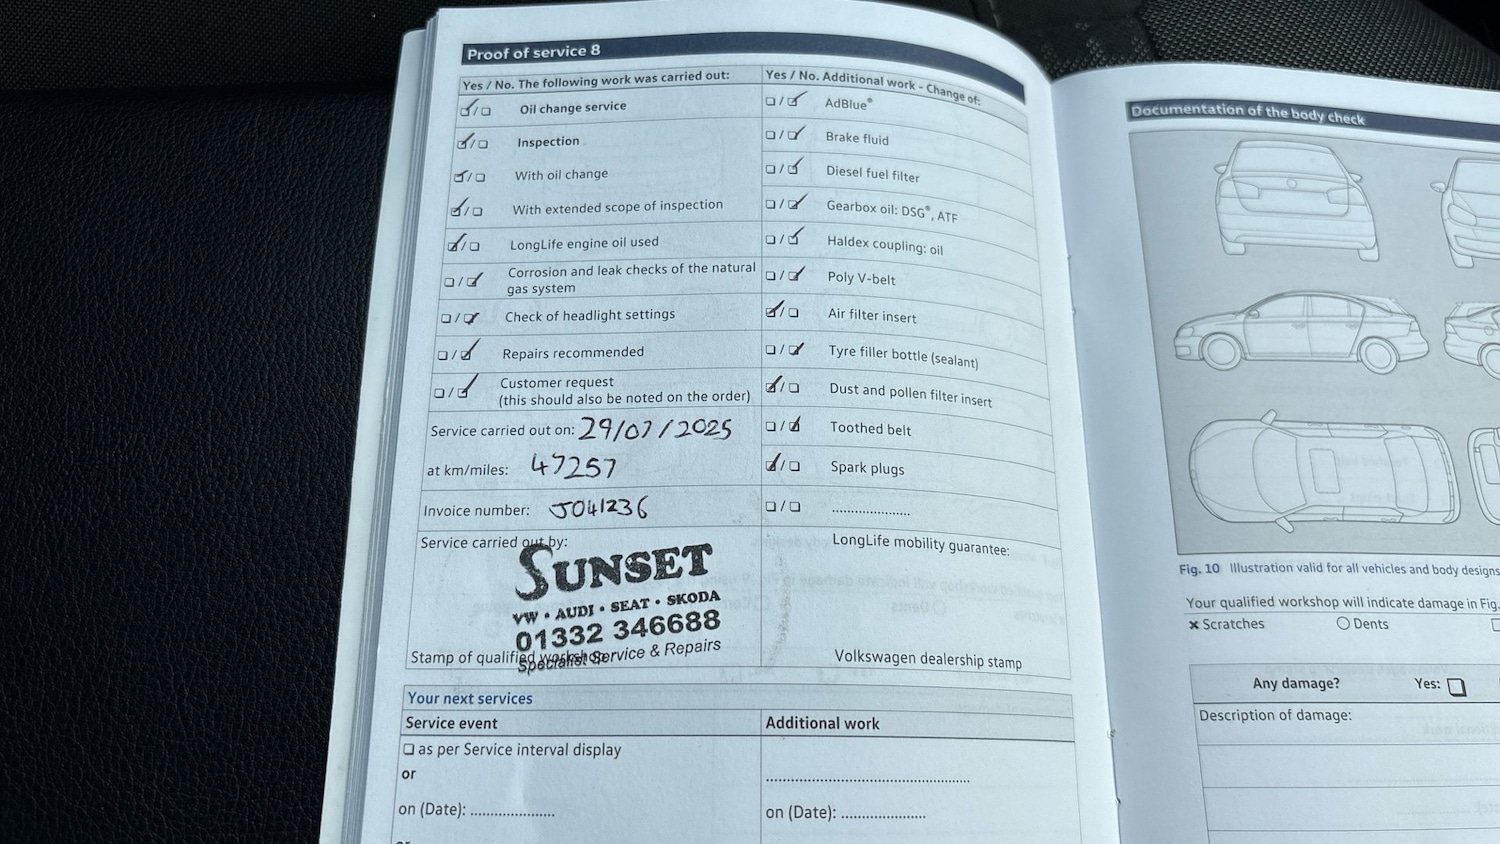 Proof of service 8
Yes / No. The following work was carried out:
Oil change service
Inspection
With oil change
With extended scope of inspection
LongLife engine oil used
Corrosion and leak checks of the natural
gas system
Check of headlight settings
Repairs recommended
Customer request
(this should also be noted on the order)
Service carried out on: 29/07/2025
at km/miles: 47257
Invoice number: J041236
Service carried out by:
SUNSET
VW • AUDI • SEAT • SKODA
01332 346688
Specialist Service & Repairs
Stamp of qualified workshop
Yes / No. Additional work - Change of:
AdBlue®
Brake fluid
Diesel fuel filter
Gearbox oil: DSG®, ATF
Haldex coupling: oil
Poly V-belt
Air filter insert
Tyre filler bottle (sealant)
Dust and pollen filter insert
Toothed belt
Spark plugs
....................
LongLife mobility guarantee:
Volkswagen dealership stamp
Your next services
Service event
as per Service interval display
or
on (Date): ....................
or
Additional work
....................
on (Date): ....................
Documentation of the body check
Fig. 10 Illustration valid for all vehicles and body designs
Your qualified workshop will indicate damage in Fig.
× Scratches
Dents
Any damage?
Yes:
Description of damage: